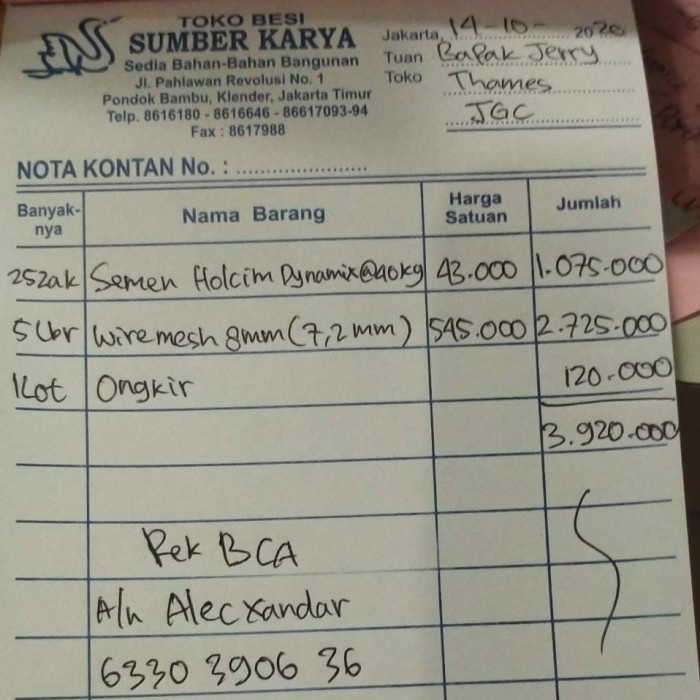 TOKO BESI
SUMBER KARYA
Sedia Bahan-Bahan Bangunan
Jl. Pahlawan Revolusi No. 1
Pondok Bambu, Klender, Jakarta Timur
Telp. 8616180 - 8616646 - 86617093-94
Fax : 8617988
Jakarta, 14-10- 2020
Tuan Bapak Jerry
Toko Thames
JGC
NOTA KONTAN No. : ......................
Banyak-nya Nama Barang Harga Satuan Jumlah
25zak Semen Holcim Dynamix@40kg 43.000 1.075.000
5 Lbr Wiremesh 8mm (7,2mm) 545.000 2.725.000
1Lot Ongkir 120.000
3.920.000
Rek BCA
A/n Alecxandar
6330 3906 36